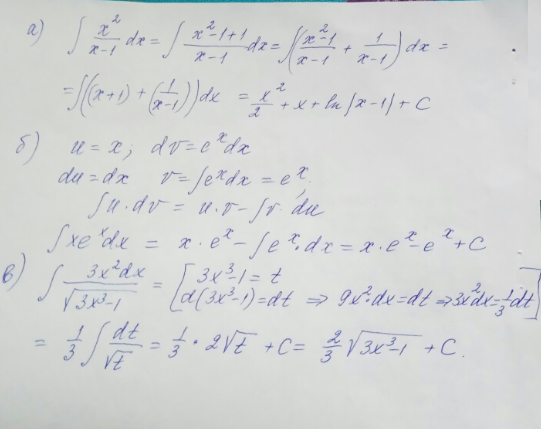 а) ∫ x²/(x-1) dx = ∫ (x²-1+1)/(x-1) dx = ∫((x²-1)/(x-1) + 1/(x-1)) dx =
= ∫((x+1) + (1/(x-1))) dx = x²/2 + x + ln|x-1| + C
б) u = x; dv = eˣdx
du = dx v = ∫eˣdx = eˣ;
∫u·dv = u·v - ∫v·du
∫xeˣdx = x·eˣ - ∫eˣ·dx = x·eˣ - eˣ + C
в) ∫ 3x²dx/√(3x³-1) = [3x³-1 = t
d(3x³-1) = dt ⇒ 9x²·dx = dt ⇒ 3x²dx = 1/3 dt]
= 1/3 ∫ dt/√t = 1/3 · 2√t + C = 2/3 √(3x³-1) + C.